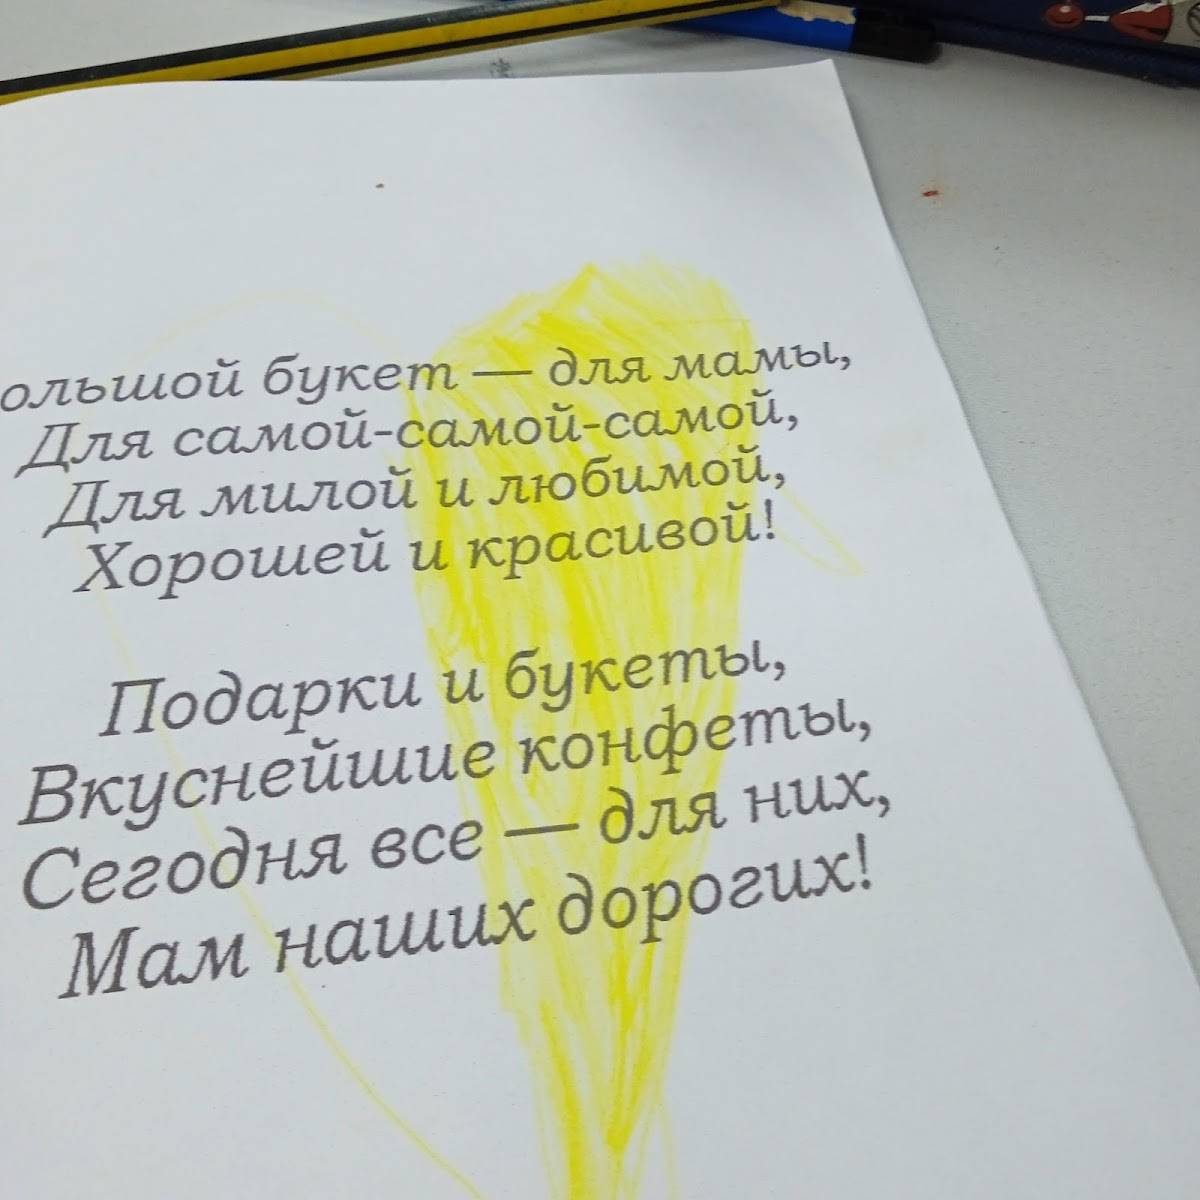 ольшой букет — для мамы,
Для самой-самой-самой,
Для милой и любимой,
Хорошей и красивой!
Подарки и букеты,
Вкуснейшие конфеты,
Сегодня все — для них,
Мам наших дорогих!